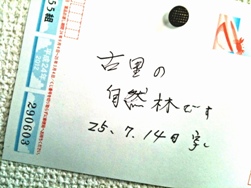 55組
290603
古里の
自然林です
25、7、14日写し